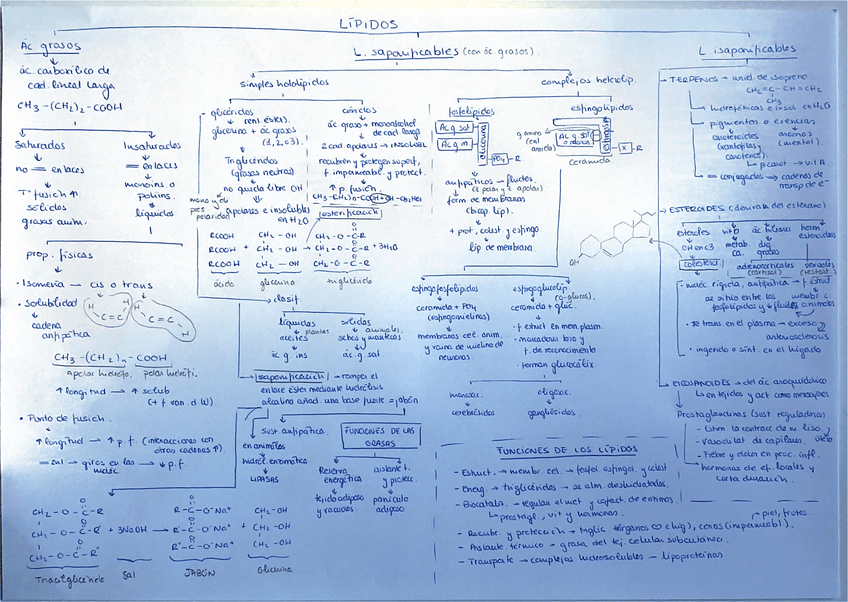 LÍPIDOS
Ác grasos
ác. carboxílico de
cad. lineal larga
CH3 -(CH2)2 -COOH
saturados
no = enlaces
Tº fusión ↑
sólidos
grasas anim.
Insaturados
= enlaces
monoins. o
poliins.
líquidos
prop. físicas
Isomería — cis o trans
Solubilidad
cadena
antipática
H H
C=C
H
C=C
H
CH3 -(CH2)n -COOH
apolar hidrófo. polar hidrófi.
↑ longitud → ↓ solub
(+ f van. d W).
Punto de fusión
↑ longitud → ↑ p. f. (interacciones con
otras cadenas ↑)
= enl → giros en las → ↓ p.f.
moléc
L. saponificables (con ác. grasos)
simples hololípidos
glicéridos
(enl éster)
glicerina + ác grasos
(1, 2, o 3)
Triglicéridos
(grasas neutras)
no queda libre OH
mono y di
pres
polaridad
Apolares e insolubles
en H2O
RCOOH
RCOOH
RCOOH
+
CH2 - OH
CH - OH
CH2 - OH
CH2 - O - C - R
CH - O - C - R
CH2 - O - C - R
+ 3H2O
ácido
glicerina
triglicérido
céridos
ác graso + monoalcohol
de cad larga
2 cad apolares → INSOLUB.
recubren y protegen superf,
+ impermeable y protect.
↑ p. fusión
esterificación
clasif
líquidos
plantas
aceites
ác g. ins
sólidos
animales
sebos y mantecas
ác g. sat
saponificación → romper el
enlace éster mediante hidrólisis
alcalina añad. una base fuerte = jabón
Sust antipática
en animales
hidról. enzimática
LIPASAS
FUNCIONES DE LAS
GRASAS
Reserva
energética
tejido adiposo
y vacuolas
aislante t.
y protecc.
panículo
adiposo
complejos heterolip.
fosfolípidos
Ác g. sat
Ác g. in
glicerina
PO4 - R
antipáticos → fluidez.
(z polar y z apolar)
form de membranas
(bicap lip).
+ prot, colest y esfingo
lip de membrana
esfingolípidos
g amino
(enl
amida)
Ác g. sat
o insat
esfingosina
X - R
ceramida
esfingofosfolípidos
ceramida + PO4
(esfingomielinas)
membranas cél anim.
y vaina de mielina de
neuronas.
esfingoglucolip.
(o-glucos).
ceramida + gluc.
- f estruct en mem. plasm.
- marcadores bio y
f. de reconocimiento
- forman glucocálix
monosac.
cerebrósidos
oligosac.
gangliósidos
OH
L isaponificables
TERPENOS → unión de isopreno
CH2=C-CH=CH2
CH3
hidrofóbicos e insol. en H2O
pigmentos o esencias
carotenoides
(xantofilas y
carotenos)
aromas
(mentol).
β caroten → vit A
= conjugados → cadenas de
transp de e-
ESTEROIDES (derivan del esterano)
esteroles
OH en C3
colesterol
vit D
metab.
Ca.
ác biliares
dig
grasas
horm
esteroideas
adrenocorticales
(cortisol)
sexuales
(testost.)
moléc rígida, antipática → f. estruct.
se sitúa entre los
fosfolípidos y ↓ fluidez
membr c
animales
se trans. en el plasma → exceso
arteriosclerosis
ingerido o sint. en el hígado
EICOSANOIDES → del ác araquidónico
en tejidos y act como mensajeros
Prostaglandinas (sust reguladoras)
- Estim la contracc de m. liso
útero
- Vasodilat de capilares.
- Fiebre y dolor en proc. infl.
hormonas de ef. locales y
corta duración.
FUNCIONES DE LOS LÍPIDOS
- Estruct. → membr cel. → fosfol. esfingol. y colest
- Energ → triglicéridos → se alm. deshidratados.
- Biocataliz. → regulan el met y cofact de enzimas
prostagl, vit y hormonas.
piel, frutos.
- Recubr. y protección → triglic (órganos ♡ e hig), ceras (impermeabl.).
- Aislante térmico → grasa del tej. celular subcutáneo.
- Transporte → complejos hidrosolubles → lipoproteínas
CH2 - O - C - R
CH - O - C - R'
CH2 - O - C - R''
+ 3NaOH →
R - C - O- Na+
R' - C - O- Na+
R'' - C - O- Na+
+
CH2 - OH
CH - OH
CH2 - OH
Triacilglicérido
Sal
JABÓN
Glicerina